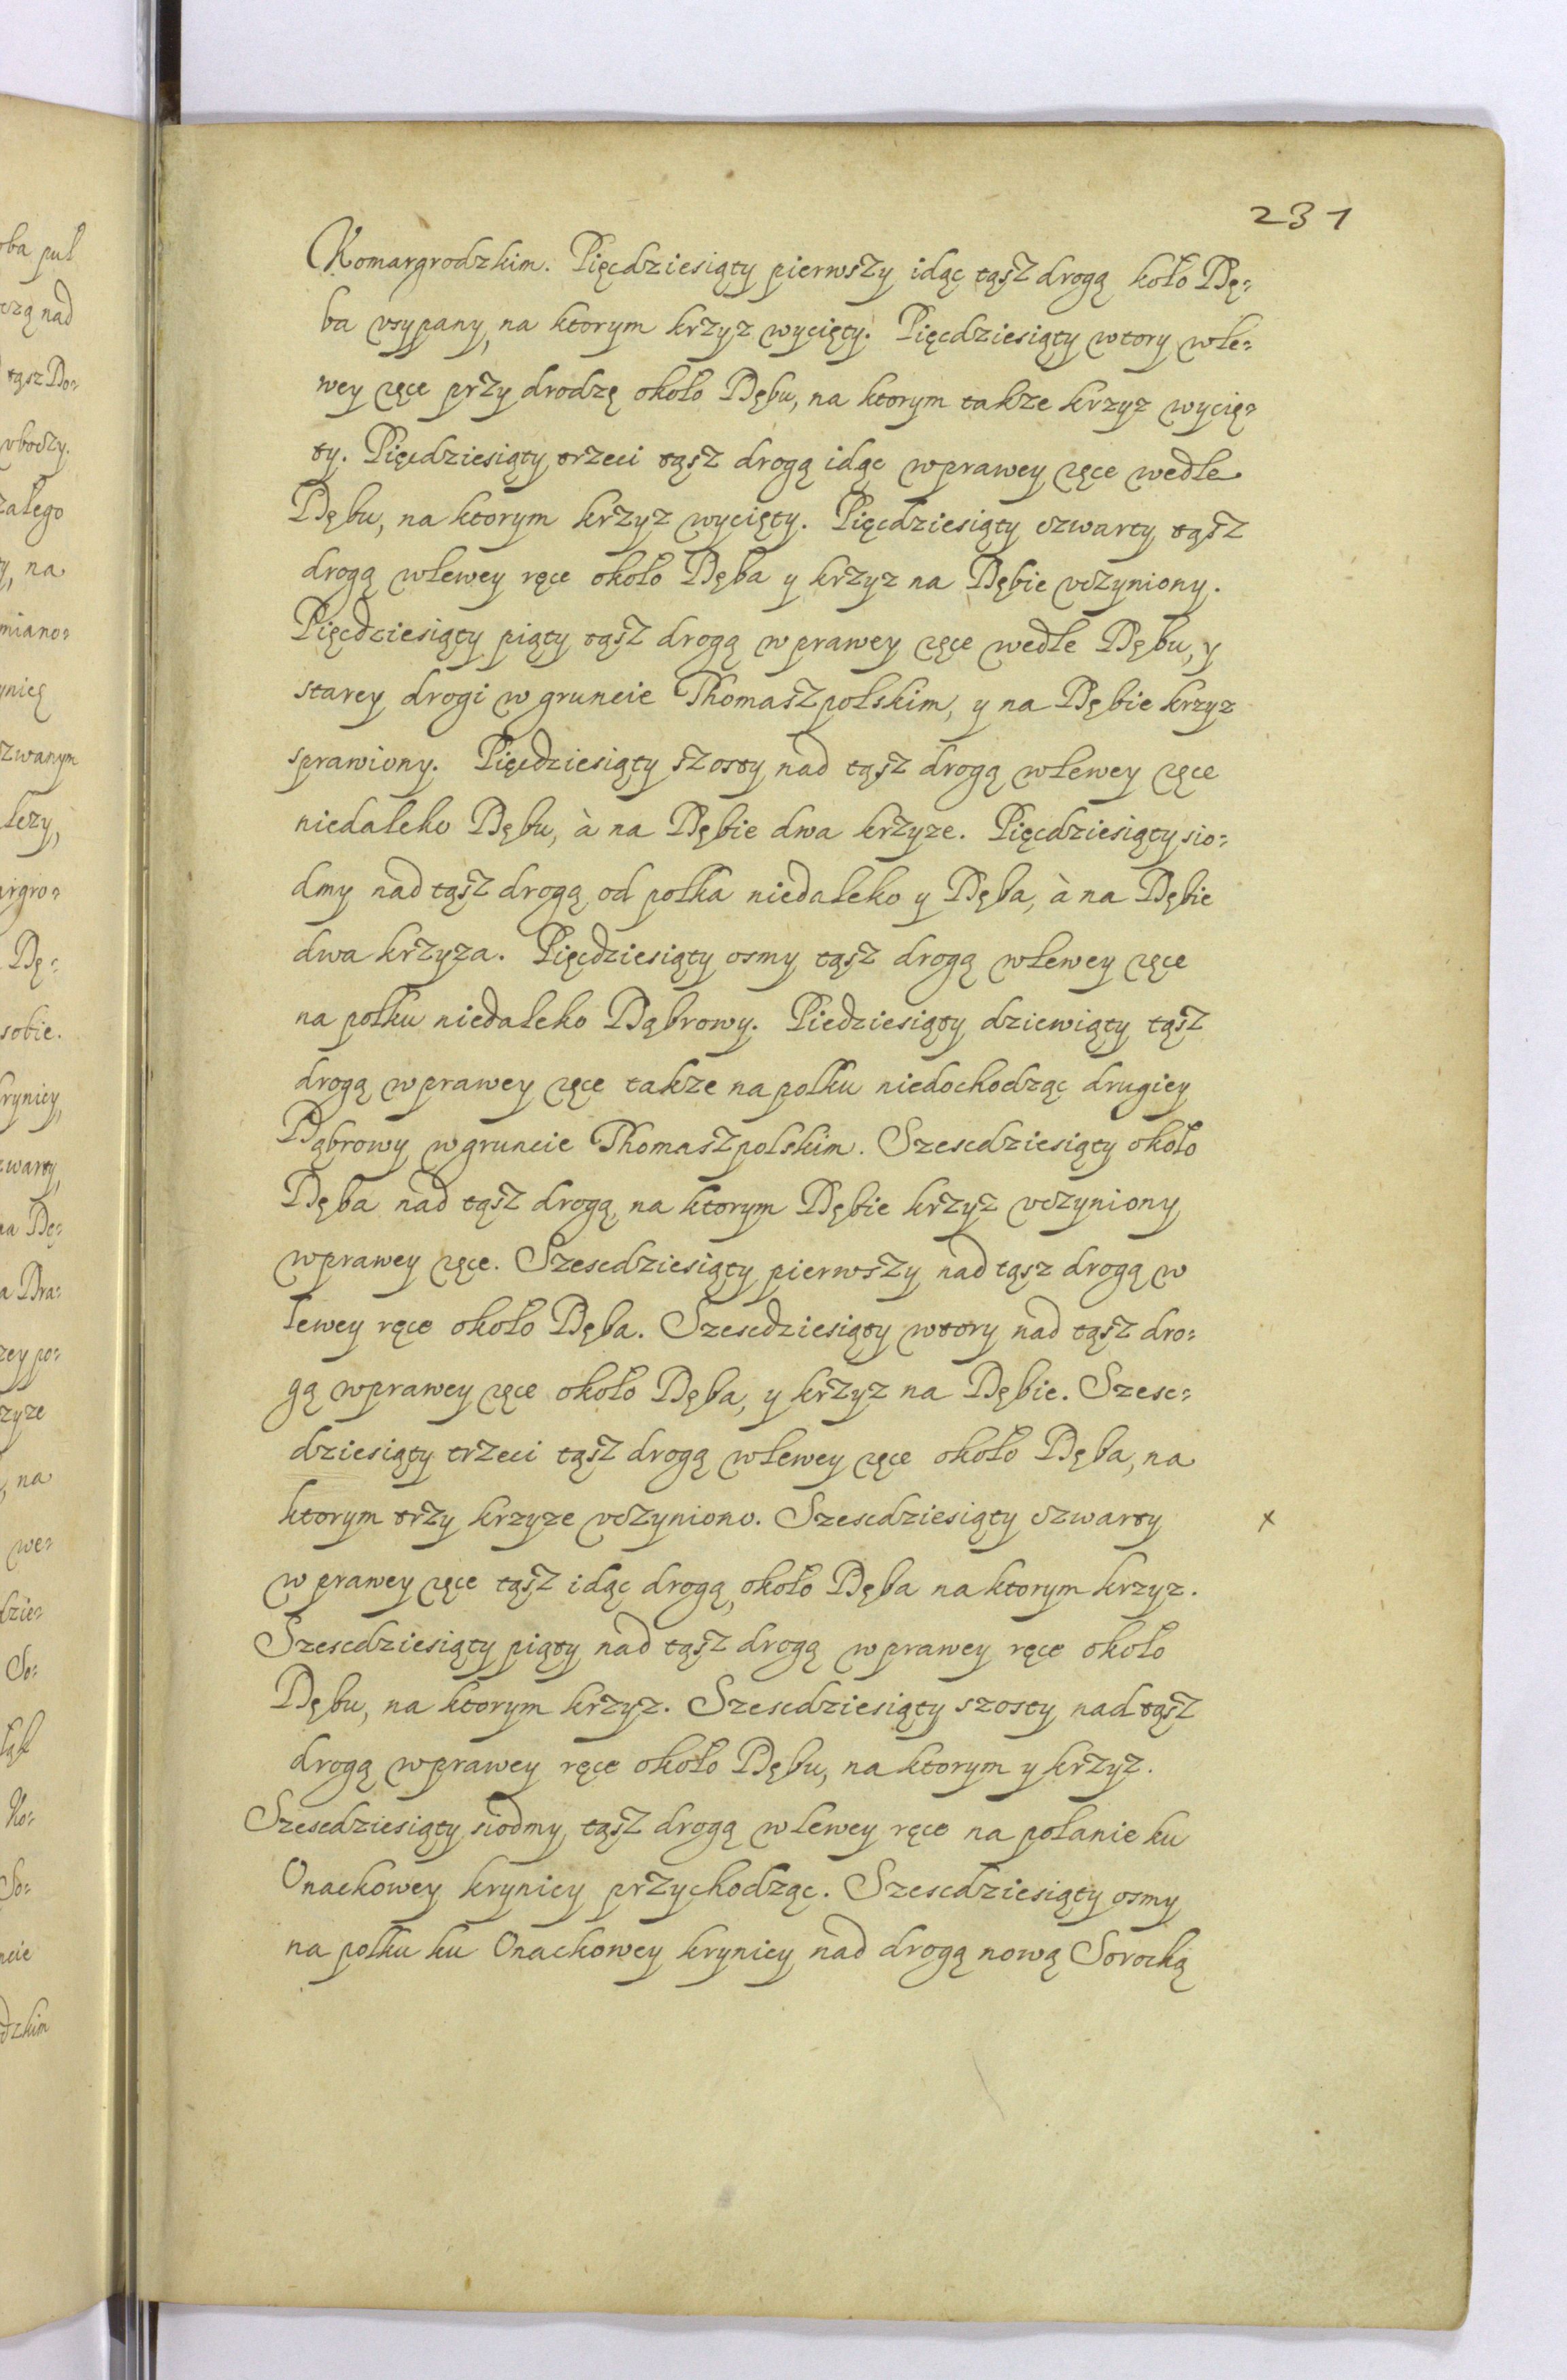 231
Komargrodzkim. Pięcdziesiąty pierwszy idąc tąsz drogą koło Dę=
ba vsypany, na ktorym krzyz wycięty. Pięcdziesiąty wtory wle=
wey ręce przy drodzę około Dębu, na ktorym takze krzyz wycię=
ty. Pięcdziesiąty trzeci tąsz drogą idąc wprawey ręce wedle
Dębu, na ktorym krzyz wycięty. Pięcdziesiąty czwarty tąsz
drogą wlewey ręce około Dęba y krzyz na Dębie vczyniony.
Pięcdziesiąty piąty tąsz drogą wprawey ręce wedle Dębu, y
starey drogi w gruncie Thomaszpolskim, y na Dębie krzyz
sprawiony. Pięcdziesiąty szosty nad tąsz drogą wlewey ręce
niedaleko Dębu, à na Dębie dwa krzyze. Pięcdziesiąty sio=
dmy nad tąsz drogą od polka niedaleko y Dęba, à na Dębie
dwa krzyza. Pięcdziesiąty osmy tąsz drogą wlewey ręce
na polku niedaleko Dąbrowy. Piedziesiąty dziewiąty tąsz
drogą wprawey ręce takze na polku niedochodząc drugiey
Dąbrowy w gruncie Thomaszpolskim. Szescdziesiąty około
Dęba nad tąsz drogą na ktorym Dębie krzyz vczyniony
wprawey ręce. Szescdziesiąty pierwszy nad tąsz drogą w
lewey ręce około Dęba. Szescdziesiąty wtory nad tąsz dro=
gą wprawey ręce około Dęba, y krzyz na Dębie. Szesc=
dziesiąty trzeci tąsz drogą wlewey ręce około Dęba, na
ktorym trzy krzyze vczyniono. Szescdziesiąty czwarty x
w prawey ręce tąsz idąc drogą, około Dęba na ktorym krzyz.
Szescdziesiąty piąty nad tąsz drogą wprawey ręce około
Dębu, na ktorym krzyz. Szescdziesiąty szosty nad tąsz
drogą wprawey ręce około Dębu, na ktorym y krzyz.
Szescdziesiąty siodmy tąsz drogą wlewey ręce na polanie ku
Onackowey krynicy przychodząc. Szescdziesiąty osmy
na polku ku Onackowey krynicy nad drogą nową Sorocką